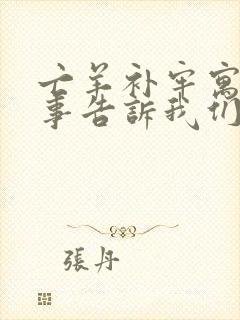 亡羊补牢寓
事告訴我们
張丹